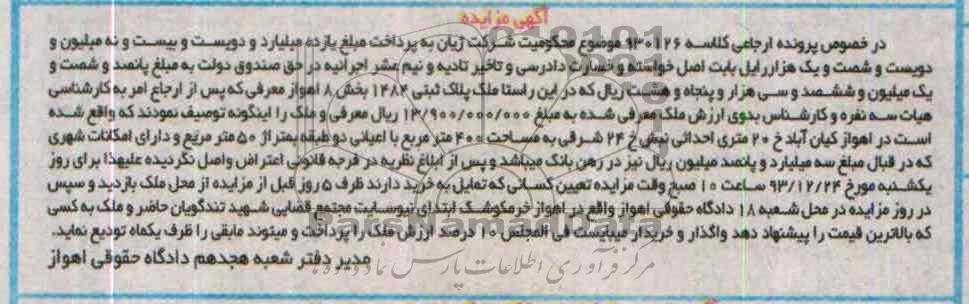 آگهی مزایده
در خصوص پرونده ارجاعی کلاسه ۹۳۰۱۲۶ موضوع محکومیت شرکت ژیان به پرداخت مبلغ یازده میلیارد و دویست و بیست و نه میلیون و
دویست و شصت و یک هزار ریال بابت اصل خواسته و خسارت دادرسی و تاخیر تادیه و نیم عشر اجرائیه در حق صندوق دولت به مبلغ پانصد و شصت و
یک میلیون و ششصد و سی هزار و پنجاه و هشت ریال که در این راستا ملک پلاک ثبتی ۱۴۸۴ بخش ۸ اهواز معرفی که پس از ارجاع امر به کارشناسی
هیات سه نفره و کارشناس بدوی ارزش ملک معرفی شده به مبلغ ۱۳/۹۰۰/۰۰۰/۰۰۰ ریال معرفی و ملک را اینگونه توصیف نمودند که واقع شده
است در اهواز کیان آباد خ ۲۰ متری احداثی نبش خ ۲۴ شرقی به مساحت ۴۰۰ متر مربع با اعیانی دو طبقه بمتراژ ۵۰ متر مربع و دارای امکانات شهری
که در قبال مبلغ سه میلیارد و پانصد میلیون ریال نیز در رهن بانک میباشد و پس از ابلاغ نظریه در فرجه قانونی اعتراض واصل نگردیده علیهذا برای روز
یکشنبه مورخ ۹۳/۱۲/۲۴ ساعت ۱۰ صبح وقت مزایده تعیین کسانی که تمایل به خرید دارند ظرف ۵ روز قبل از مزایده از محل ملک بازدید و سپس
در روز مزایده در محل شعبه ۱۸ دادگاه حقوقی اهواز واقع در اهواز خرمکوشک ابتدای نیوسایت مجتمع قضایی شهید تندگویان حاضر و ملک به کسی
که بالاترین قیمت را پیشنهاد دهد واگذار و خریدار میبایست فی المجلس ۱۰ درصد ارزش ملک را پرداخت و میتوند مابقی را ظرف یکماه تودیع نماید.
مدیر دفتر شعبه هجدهم دادگاه حقوقی اهواز
مرکز فرآوری اطلاعات پارس نماد داده ها